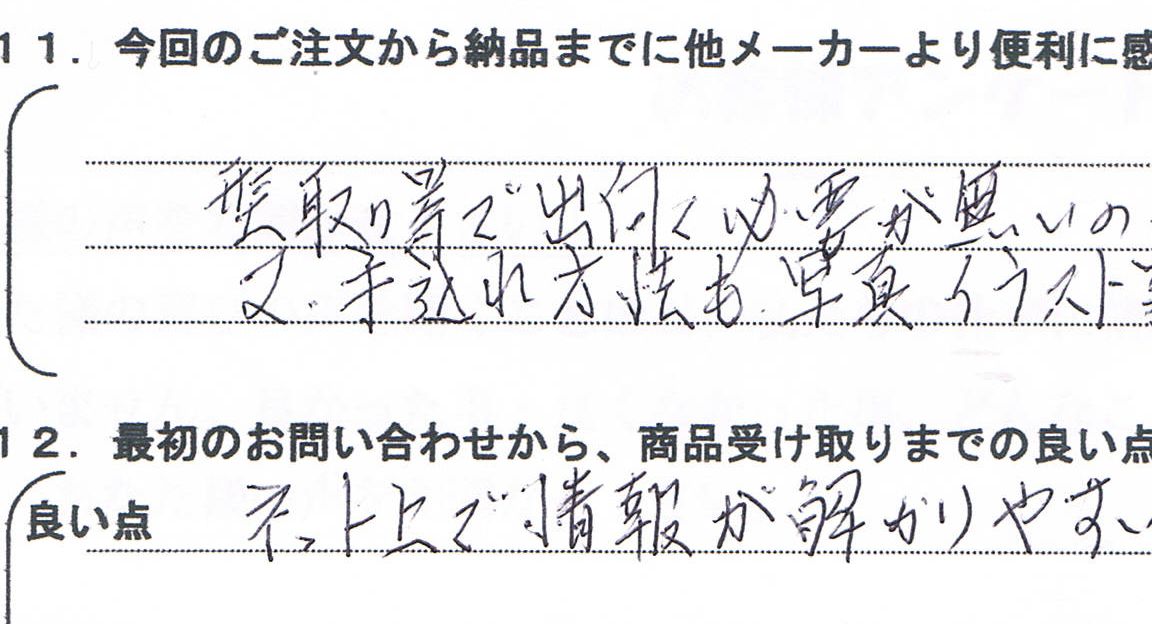 11．今回のご注文から納品までに他メーカーより便利に感
型取り等で出向く必要が無いの
又、手込れ方法も、写真イラスト等
12．最初のお問い合わせから、商品受け取りまでの良い点
良い点 ネット上で情報が解かりやすい